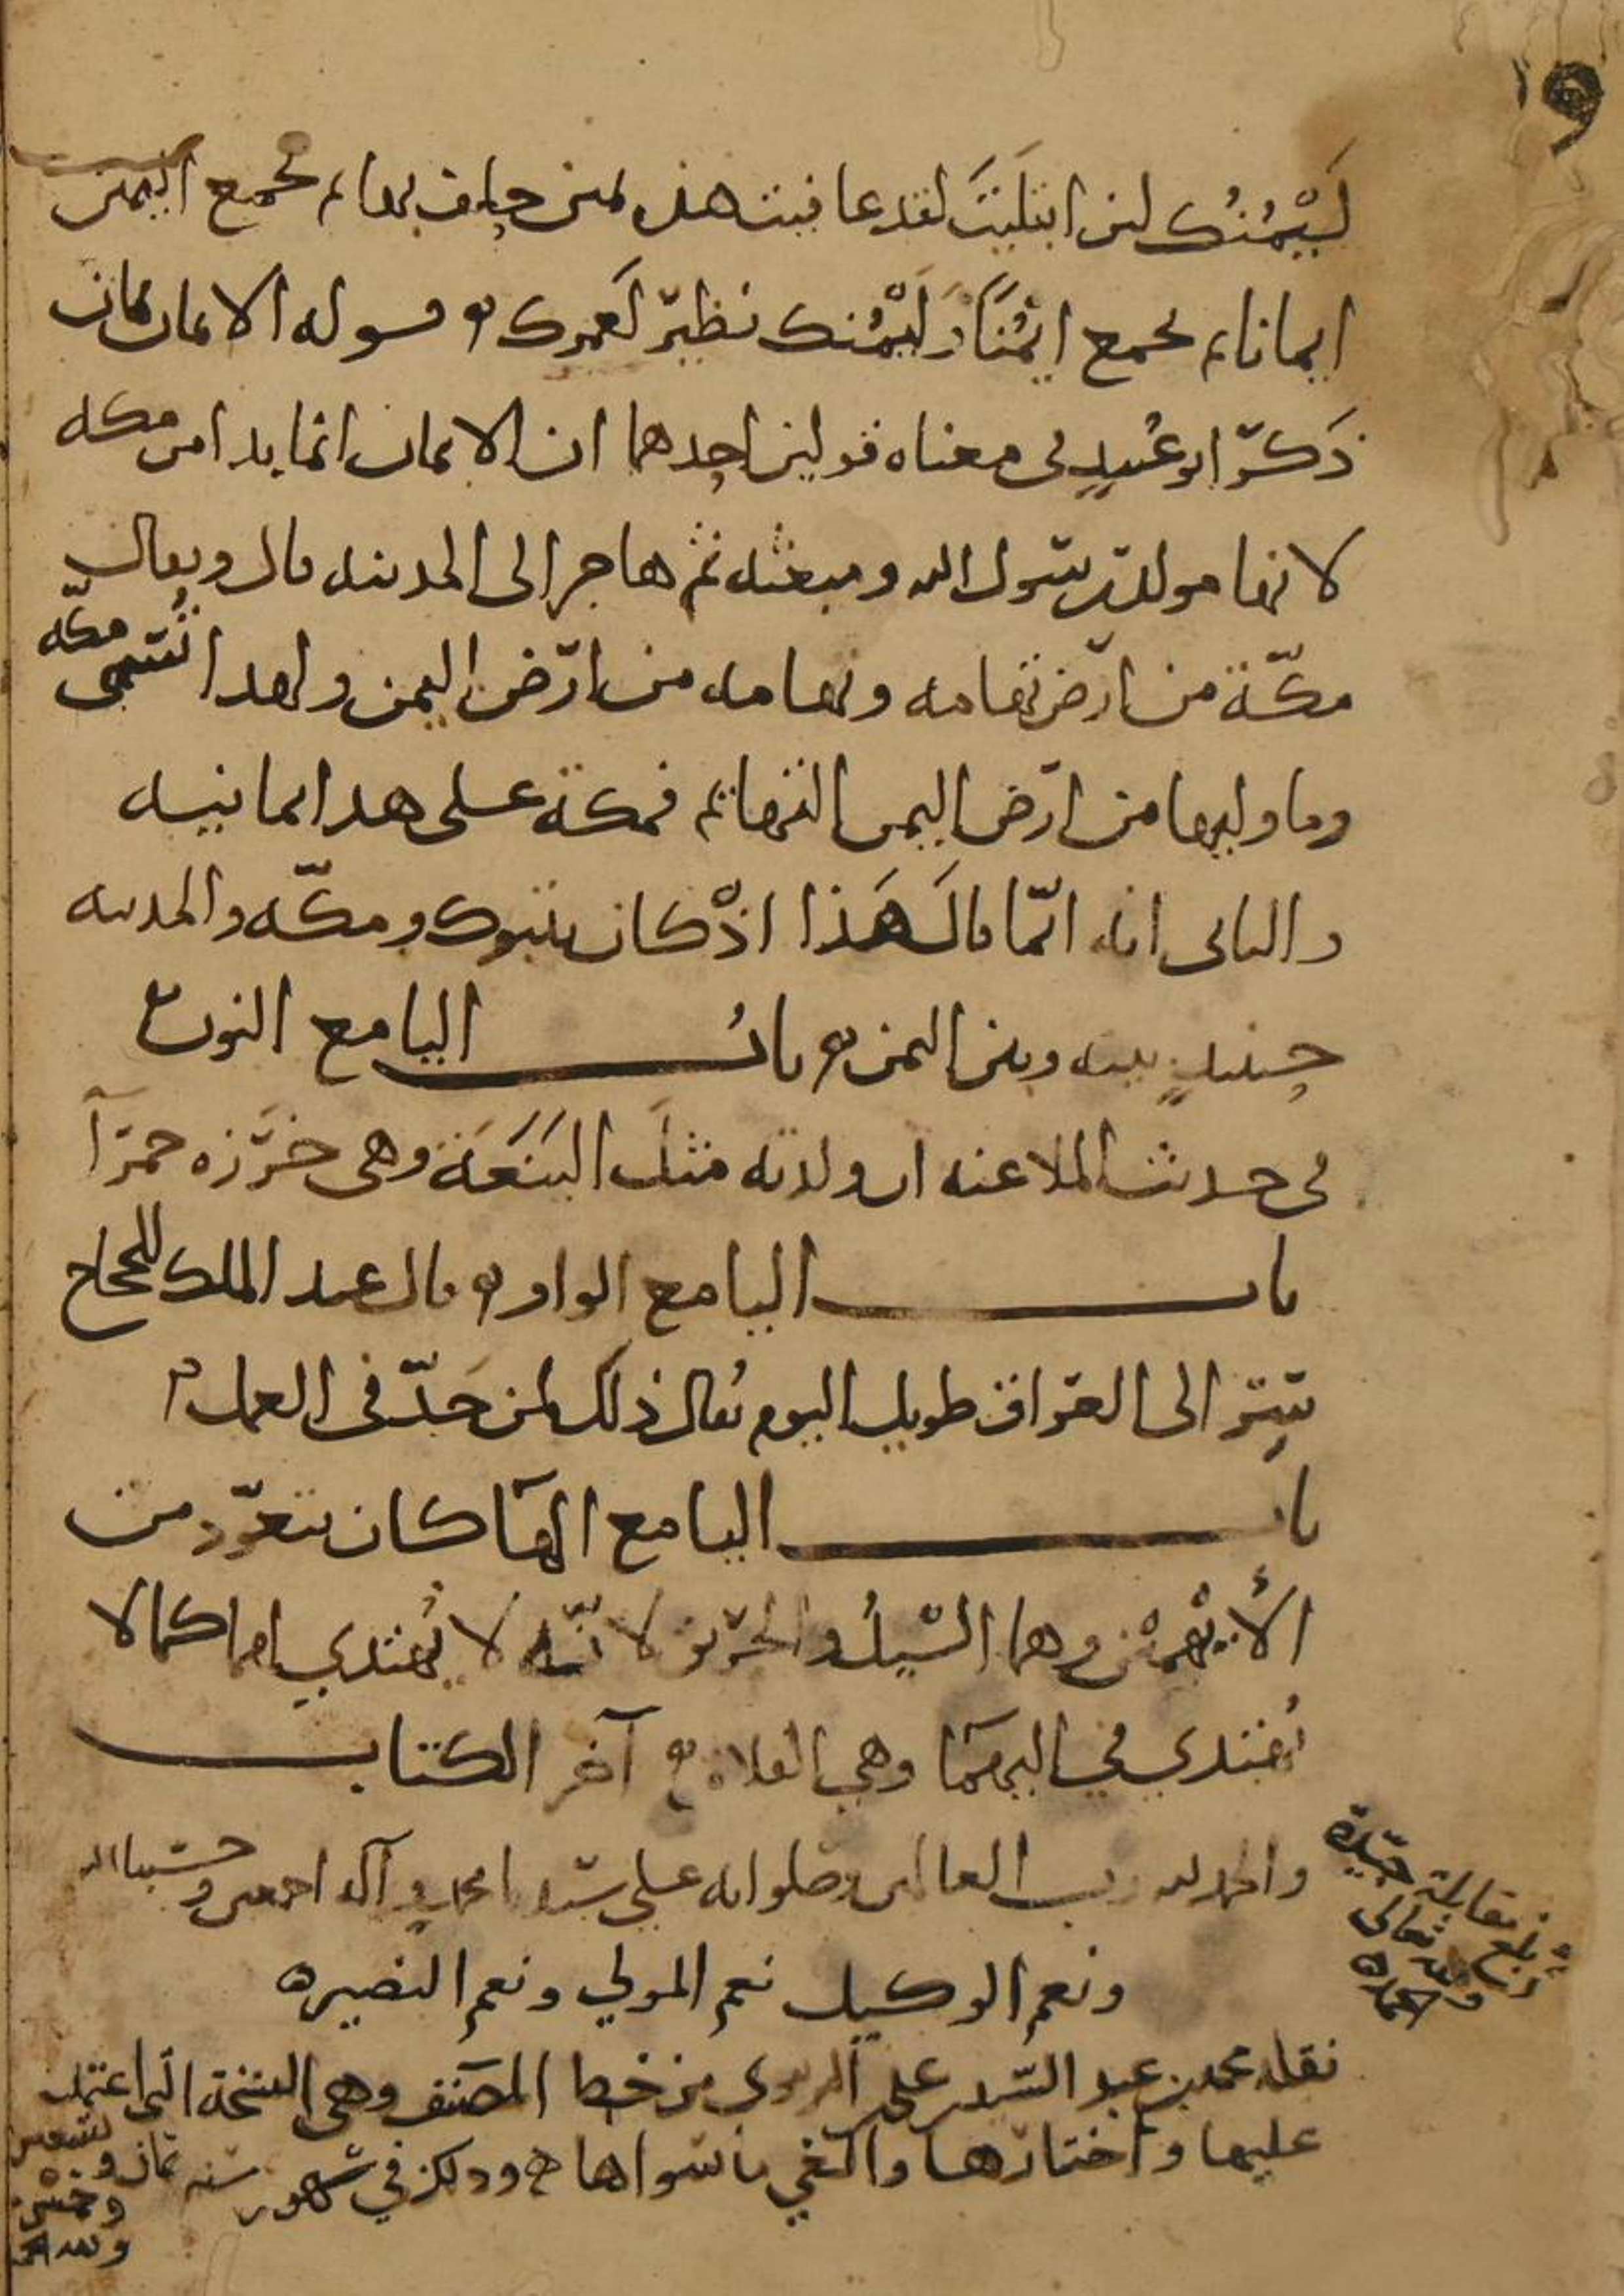 لَيْمُنُك لئن ابتليتَ لقد عافيت هذه يمين حلف بها ثم تجمع اليمين
ايمانا ثم تجمع ايْمُنًا ولَيْمُنك نظير لَعمرك قوله الايمان يمان
ذكر ابو عُبيد في معناه قولين احدهما ان الايمان انما بدا من مكه
لانها مولد رسول الله ومبعثه ثم هاجر الى المدينه قال ويقال
مكّة من ارض تهامه وتهامه من ارض اليمن ولهدا تُسَمى مكّه
وما وليها من ارض اليمن التهائم فمكة على هدا يمانيه
والثاني انه انّما قال هَذا اذْ كان بتبوك ومكّه والمدينه
حينئذٍ بينه وبين اليمن باب اليا مع النون
في حديث الملاعنه ان ولدته مثل اليَنَعَة وهي خَرَزه حمرآ
باب اليا مع الواو قال عبد الملك للحجاج
سِر الى العراق طويل اليوم يُقال ذلك لمن جَدّ في العمل
باب اليا مع الهآ كان يتعوّد من
الأيْهمين وهما السيلُ والحريق لانّه لا يُهتدي لهما كما لا
يُهتدي في اليهمآ وهي الفلاة آخر الكتاب
والحمد لله رب العالمين وصلواته على سيدنا محمدٍ وآله اجمعين وحسبنا الله
ونعم الوكيل نعم المولي ونعم النصير
بلغ مقابلة جيّدة
ولله تعالى
الحمد
نقله محمد بن عبد السيد بن علي من خط المصنف وهي النسخة التي اعتمد
عليها واختارها والغي ما سواها وذلك في شهور سنه ثمان وتسعين
وخمس